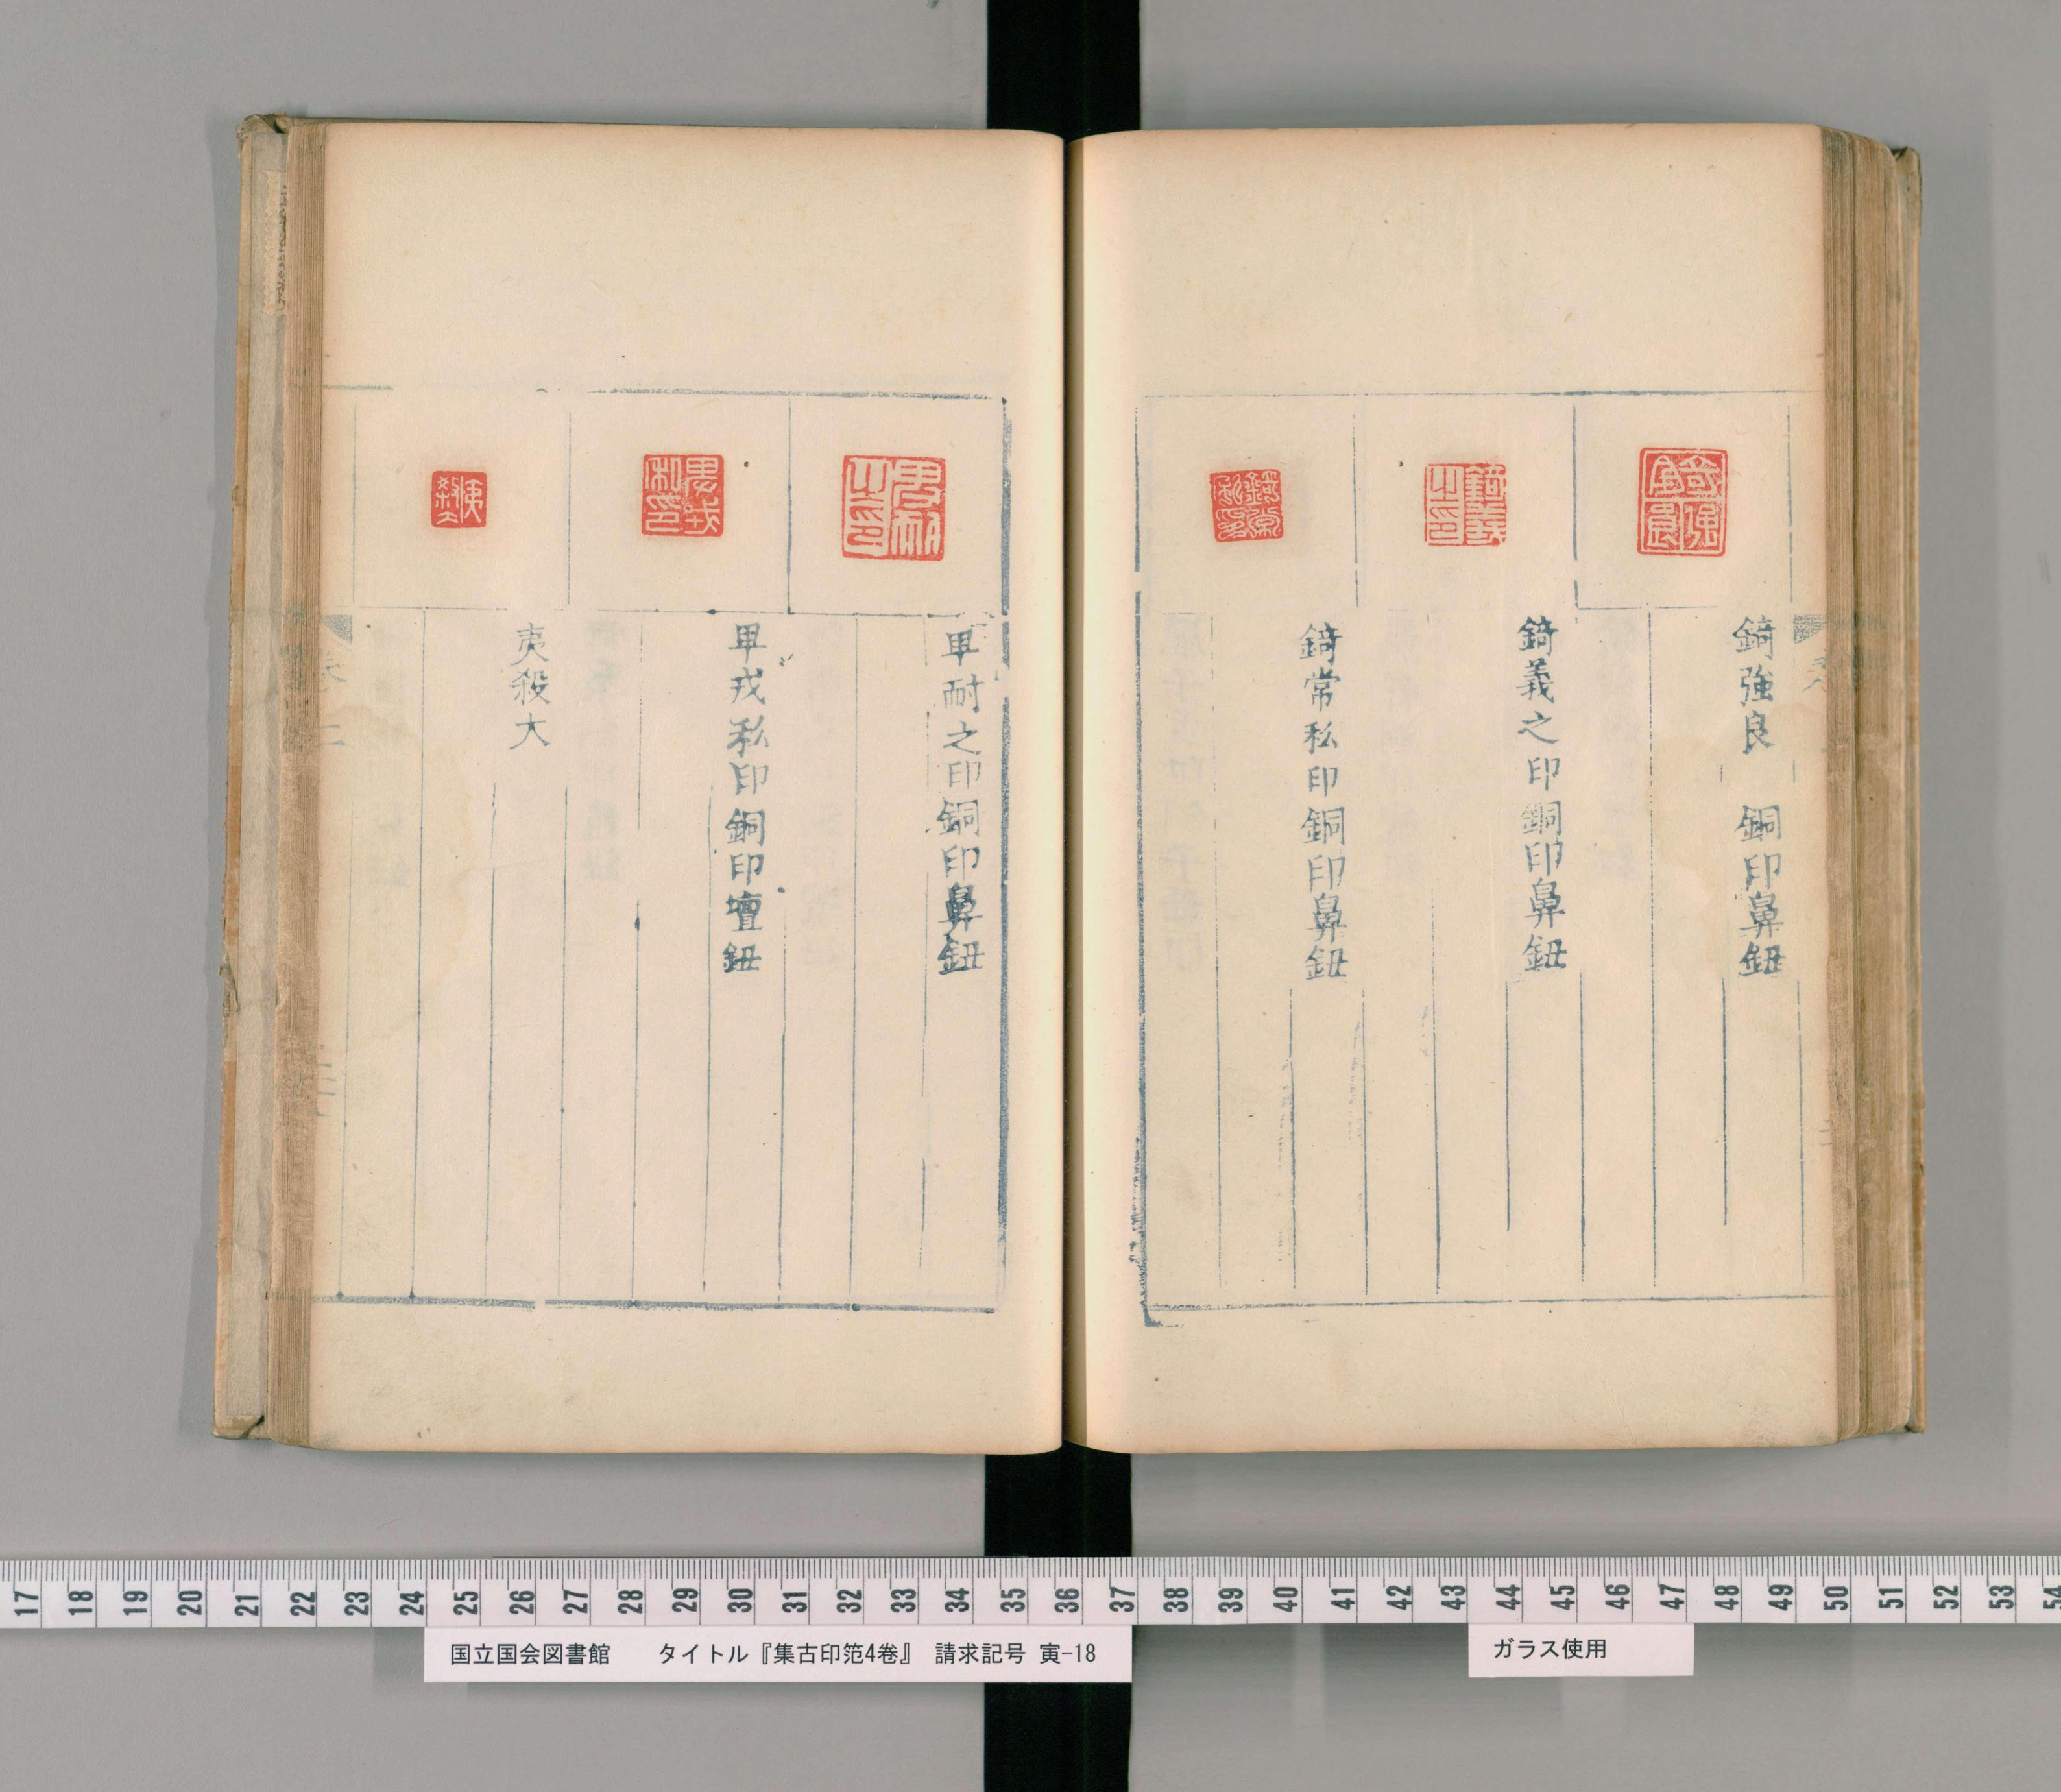 錡強良　銅印鼻鈕
錡義之印銅印鼻鈕
錡常私印銅印鼻鈕
卑耐之印銅印鼻鈕
卑戎私印銅印壇鈕
夷殺大
17 18 19 20 21 22 23 24 25 26 27 28 29 30 31 32 33 34 35 36 37 38 39 40 41 42 43 44 45 46 47 48 49 50 51 52 53 54
国立国会図書館　タイトル『集古印笵4巻』　請求記号 寅-18
ガラス使用